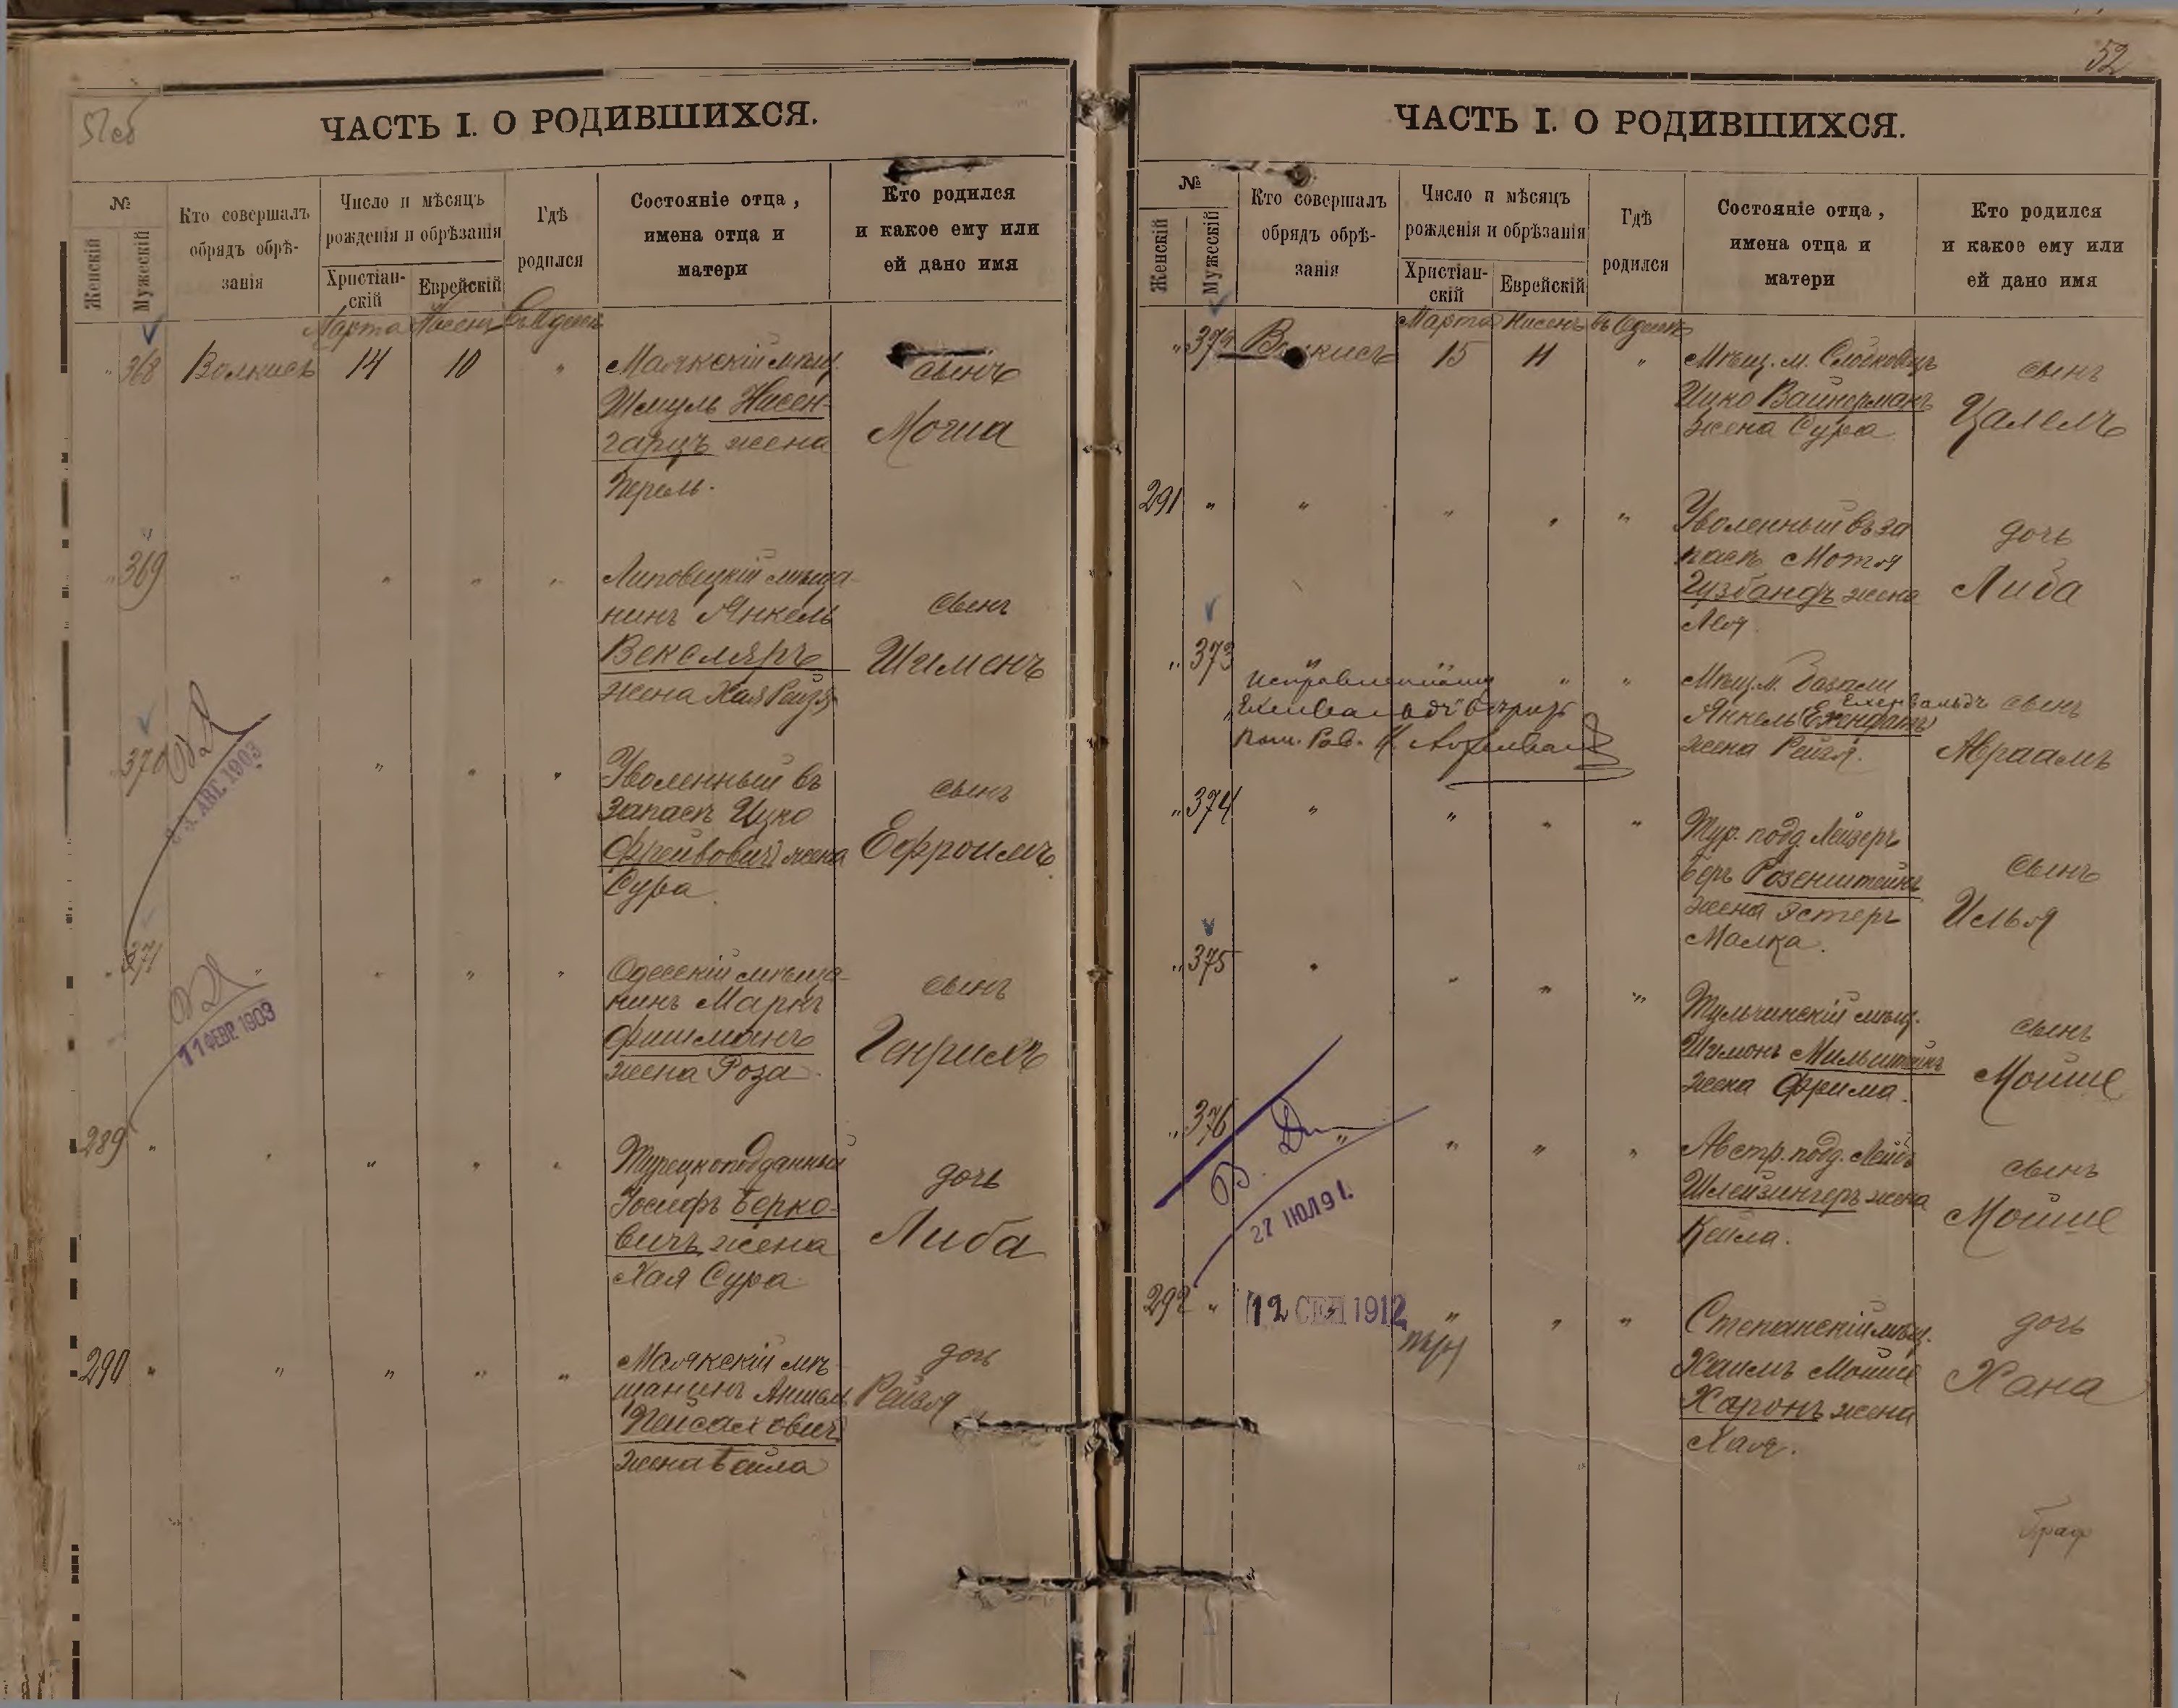 51об
ЧАСТЬ I. О РОДИВШИХСЯ.
№
Женскій
Мужескій
Кто совершалъ
обрядъ обрѣ-
занія
Число и мѣсяцъ
рожденія и обрѣзанія
Христіан-
скій
Еврейскій
Гдѣ
родился
Состояніе отца,
имена отца и
матери
Кто родился
и какое ему или
ей дано имя
Марта Нисенъ въ Одессѣ
" 368 Волкисъ 14 10 " Маякскій мѣщ.
Шмуль Нисен-
гарцъ жена
Перель.
сынъ
Мочиа
" 369 " " " " Липовецкій мѣща-
нинъ Янкель
Вексляръ
жена Хая Рейзя
сынъ
Шименъ
370 " " " Уволенный въ
запасъ Ицко
Фрейвовичъ жена
Сура.
сынъ
Ефроимъ
АВГ. 1903
" 371 " " " " Одесскій мѣща-
нинъ Маркъ
Фишманъ
жена Роза.
сынъ
Генрихъ
11 ФЕВР. 1903
289 " " " " " Турецкоподданный
Іосифъ Берко-
вичъ жена
Хая Сура.
дочь
Либа
290 " " " " " Маякскій мѣ-
щанинъ Аншель
Пейсаховичъ
жена Бейла
дочь
Рейзя
52
ЧАСТЬ I. О РОДИВШИХСЯ.
№
Женскій
Мужескій
Кто совершалъ
обрядъ обрѣ-
занія
Число и мѣсяцъ
рожденія и обрѣзанія
Христіан-
скій
Еврейскій
Гдѣ
родился
Состояніе отца,
имена отца и
матери
Кто родился
и какое ему или
ей дано имя
Марта Нисенъ въ Одессѣ
" 372 Волкисъ 15 11 " Мѣщ. м.
Ицко Вайнерманъ
жена Сура
сынъ
Цалелъ
291 " " " " " Уволенный въ за
пасъ Мотя
Гузбандъ жена
Лея.
дочь
Либа
" 373 " " " Мѣщ. м.
Янкель
жена Рейзя.
сынъ
Авраамъ
" 374 " " " " Тур. подд. Лейзеръ
Беръ Розенштейнъ
жена Эстеръ
Малка.
сынъ
Илья
" 375 " " " " Тульчинскій мѣщ.
Шимонъ Мильштейнъ
жена Фрима.
сынъ
Мойше
" 376 " " " " Австр. подд. Лейбъ
Шлейзингеръ жена
Кейла.
сынъ
Мойше
27 ІЮЛ 91.
292 " 12 СЕН 1912 " " " Степанскій мѣщ.
Хаимъ Мойше
Харонъ жена
Хая.
дочь
Хана